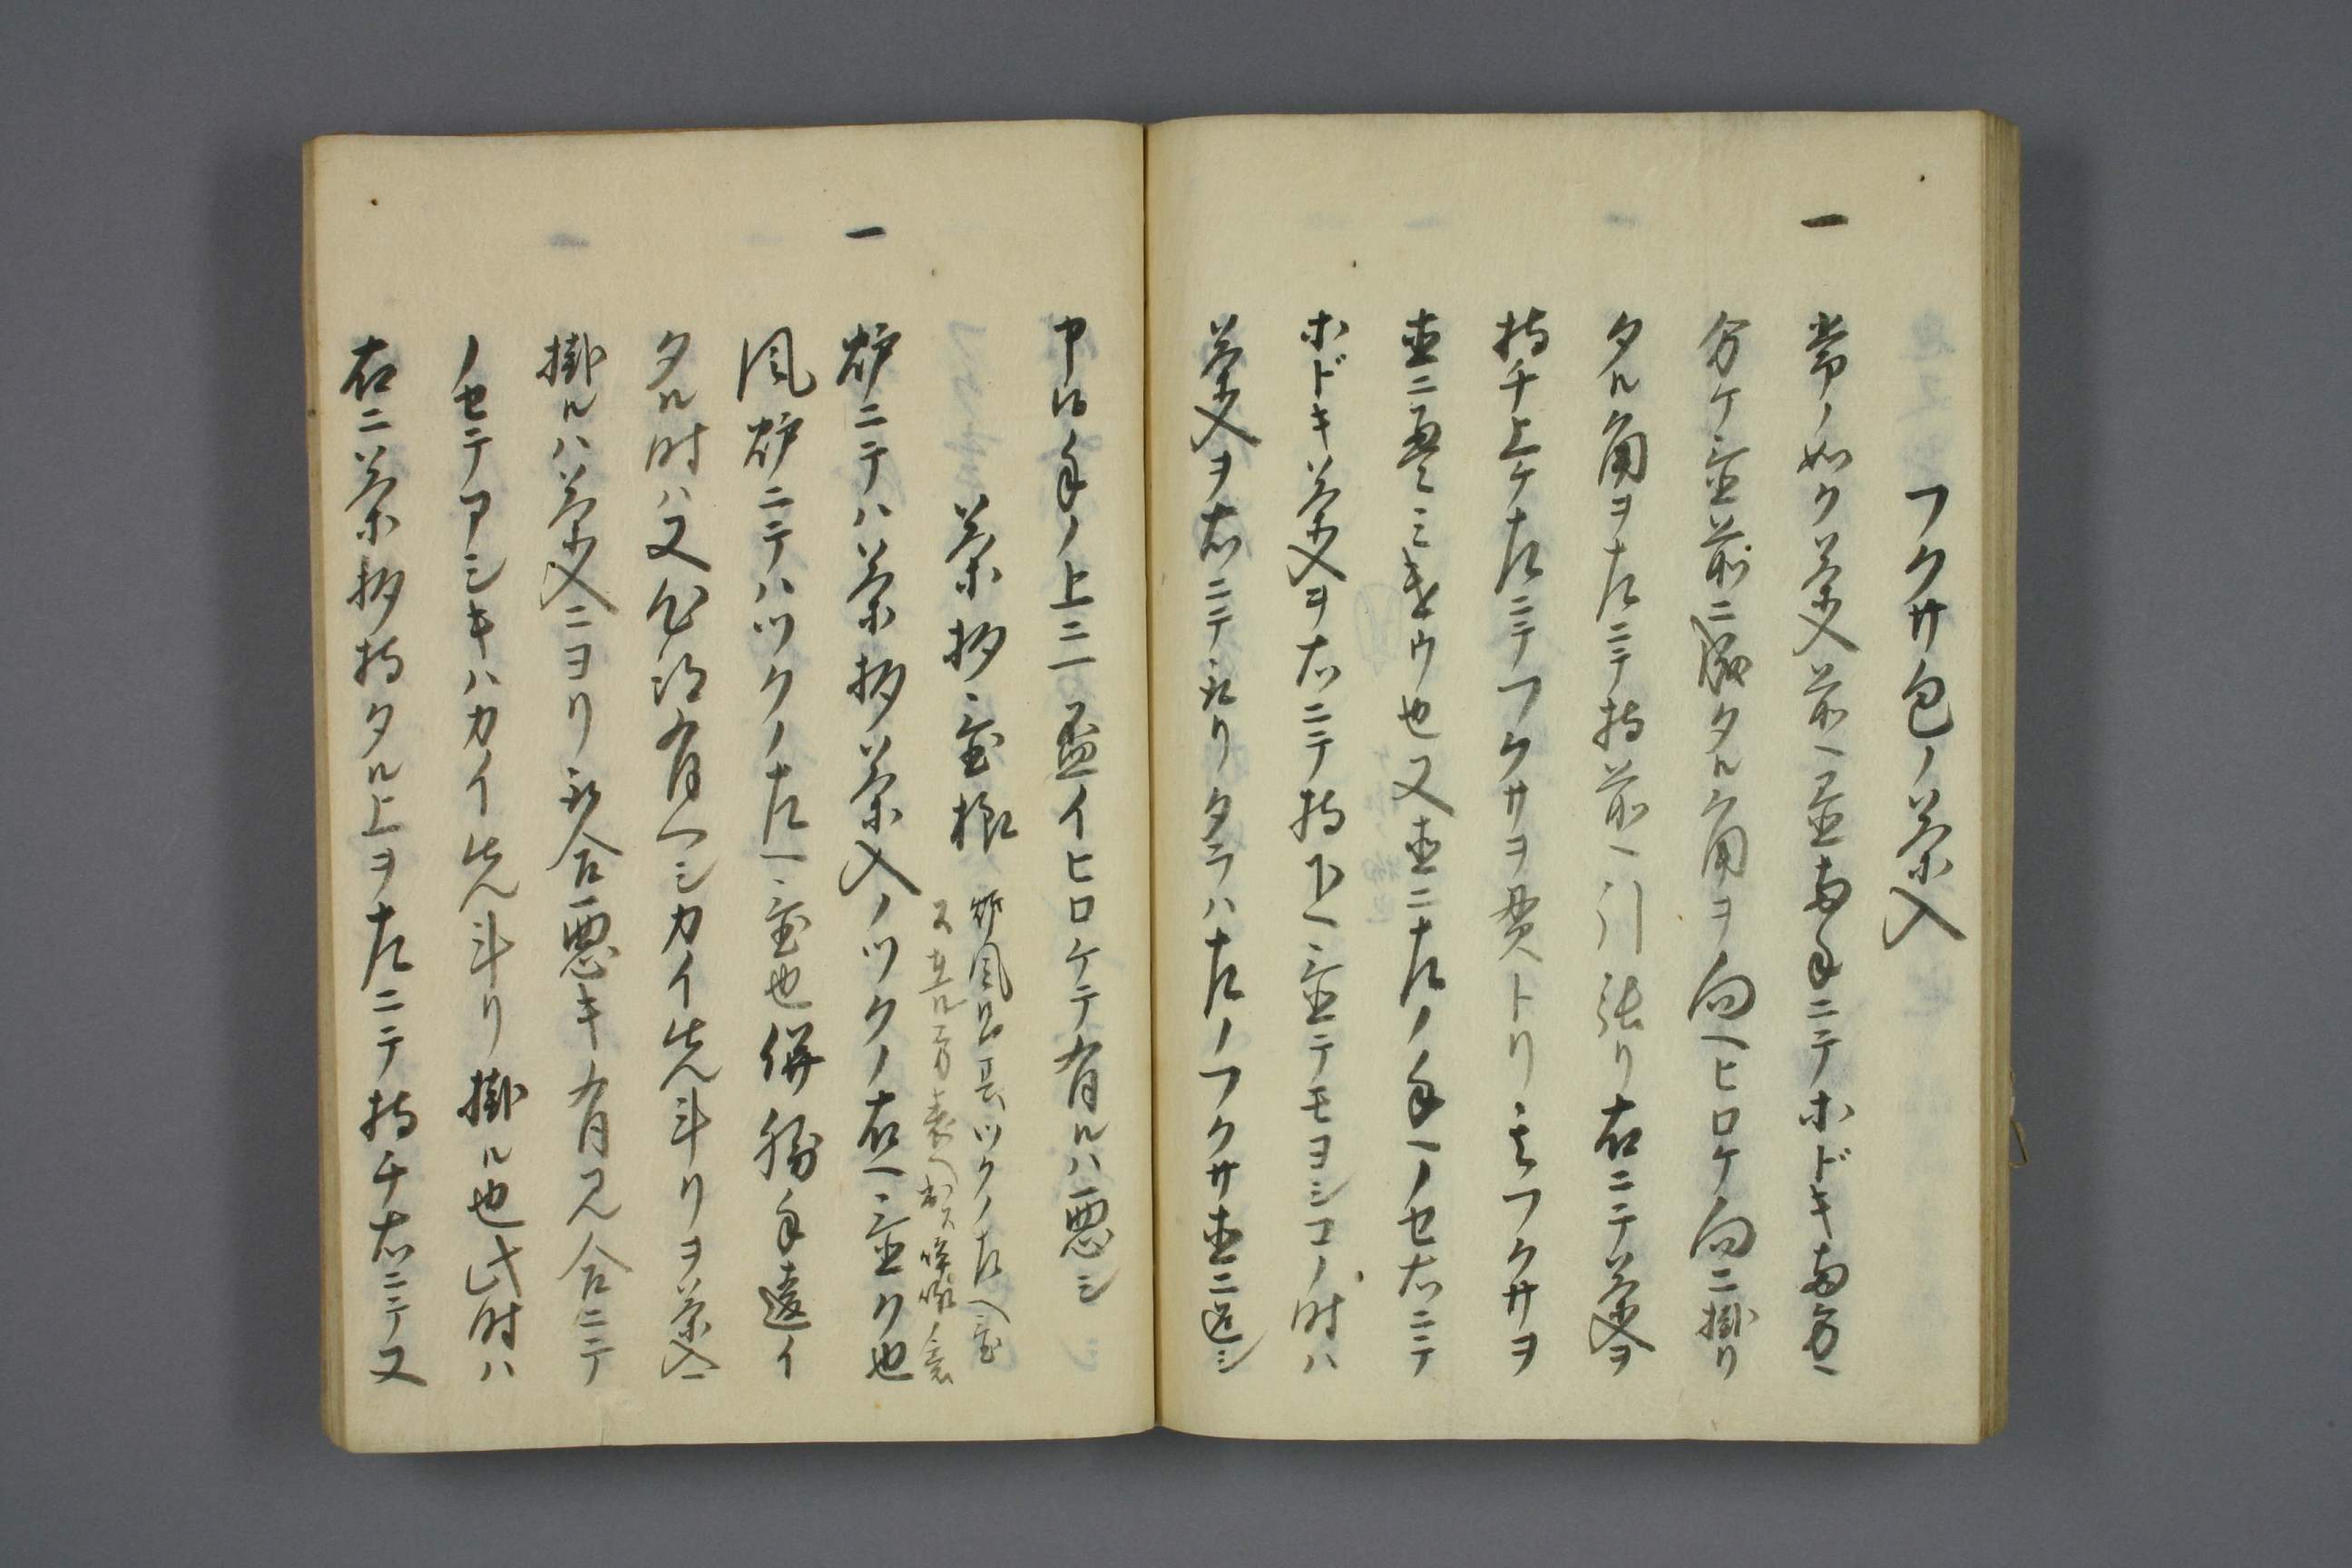 フクサ包ノ茶入
一 常ノ如ク茶入前ヘ置両手ニテホドキ両方ヘ
分ケ置前ニ成タル角ヲ向ヘヒロケ向ニ掛リ
タル角ヲ左ニテ持前ヘ引張リ右ニテ茶入ヲ
持チ上ケ左ニテフクサヲ貫トリ フクサヲ
直ニ ミ 也又直ニ左ノ手ヘノセ右ニテ
ホドキ茶入ヲ右ニテ持下ヘ置テモヨシコノ時ハ
茶入ヲ右ニテ取リタラハ左ノフクサ直ニ返シ
申候手ノ上ニ一盃イヒロケテ有ルハ悪シ
茶杓ヽ置様
炉風 ツクノ左ヘ置
一 炉ニテハ茶杓茶入ノツクノ右ヘ置ク也
風炉ニテハツクノ左ヘ置也併勝手違イ
タル時ハ又 有ヘシカイ先斗リヲ茶入ヘ
掛ルハ茶入ニヨリ取合悪キ有見合ニテ
ノセテアシキハカイ先斗リ掛ル也此時ハ
右ニ茶杓持タル上ヲ左ニテ持チ右ニテ又